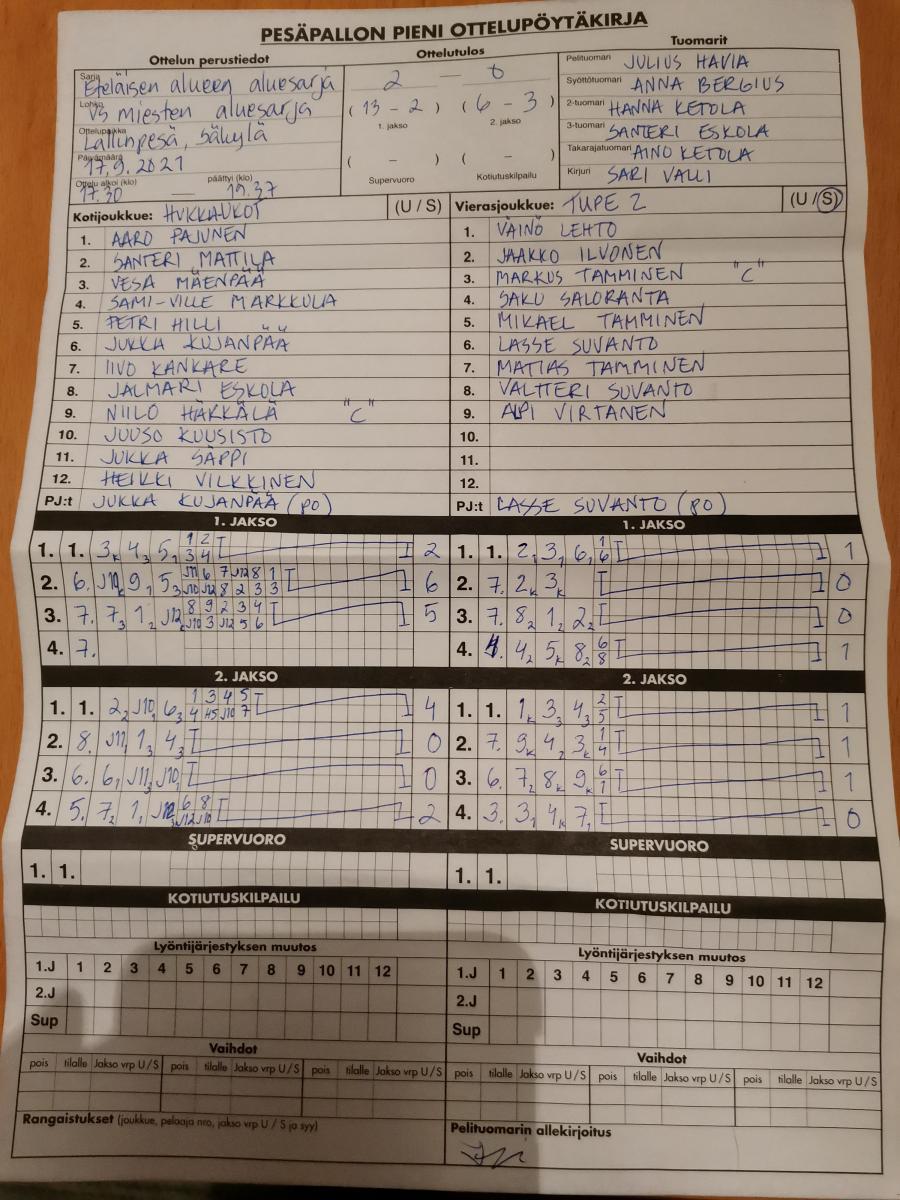 PESÄPALLON PIENI OTTELUPÖYTÄKIRJA
Ottelun perustiedot Ottelutulos Tuomarit
Sarja Eteläisen alueen aluesarja
Lohko V5 miesten aluesarja
Ottelupaikka Lallinpesä, Säkylä
Päivämäärä 17.9.2021
Ottelu alkoi (klo) 17.30 — päättyi (klo) 19.37
2 — 0
(13 - 2) (6 - 3)
1. jakso 2. jakso
( - ) ( - )
Supervuoro Kotiutuskilpailu
Pelituomari JULIUS HAVIA
Syöttötuomari ANNA BERGIUS
2-tuomari HANNA KETOLA
3-tuomari SANTERI ESKOLA
Takarajatuomari AINO KETOLA
Kirjuri SARI VALLI
Kotijoukkue: HUKKAUKOT (U / S)
1. AARO PAJUNEN
2. SANTERI MATTILA
3. VESA MÄENPÄÄ
4. SAMI-VILLE MARKKULA
5. PETRI HILLI
6. JUKKA KUJANPÄÄ
7. IIVO KANKARE
8. JALMARI ESKOLA
9. NIILO HÄKKÄLÄ "C"
10. JUUSO KUUSISTO
11. JUKKA SÄPPI
12. HEIKKI VILKKINEN
PJ:t JUKKA KUJANPÄÄ (PO)
Vierasjoukkue: TUPE 2 (U / S)
1. VÄINÖ LEHTO
2. JAAKKO ILVONEN
3. MARKUS TAMMINEN "C"
4. SAKU SALORANTA
5. MIKAEL TAMMINEN
6. LASSE SUVANTO
7. MATIAS TAMMINEN
8. VALTTERI SUVANTO
9. ALPI VIRTANEN
10.
11.
12.
PJ:t LASSE SUVANTO (PO)
1. JAKSO 1. JAKSO
1. 1. 3K 43 51 1 2 2
3 4
2. 6. J10K 91 53 J11 6 7 J12 8 1 6
J10 J12 8 2 3 3
3. 7. 73 12 J12K 8 9 2 3 4 5
J10 3 J12 5 6
4. 7.
1. 1. 2, 3, 6, 1 1
6
2. 7. 2K 3K 0
3. 7. 82 12 22 0
4. 42 5K 82 6 1
8
2. JAKSO 2. JAKSO
1. 1. 22 J10 63 1 3 4 5 4
4 J10 7
2. 8. J11 13 43 0
3. 6. 6, J11 J10 0
4. 5. 72 1, 6 8 2
J12 J10
1. 1. 1K 33 43 2 1
5
2. 7. 9K 42 3K 1 1
4
3. 6. 72 8K 9K 6 1
1
4. 3. 31 4K 71 0
SUPERVUORO SUPERVUORO
1. 1. 1. 1.
KOTIUTUSKILPAILU KOTIUTUSKILPAILU
Lyöntijärjestyksen muutos Lyöntijärjestyksen muutos
1.J 1 2 3 4 5 6 7 8 9 10 11 12 1.J 1 2 3 4 5 6 7 8 9 10 11 12
2.J 2.J
Sup Sup
Vaihdot Vaihdot
pois tilalle Jakso vrp U / S pois tilalle Jakso vrp U / S pois tilalle Jakso vrp U / S
pois tilalle Jakso vrp U / S pois tilalle Jakso vrp U / S pois tilalle Jakso vrp U / S
Rangaistukset (joukkue, pelaaja nro, jakso vrp U / S ja syy)
Pelituomarin allekirjoitus